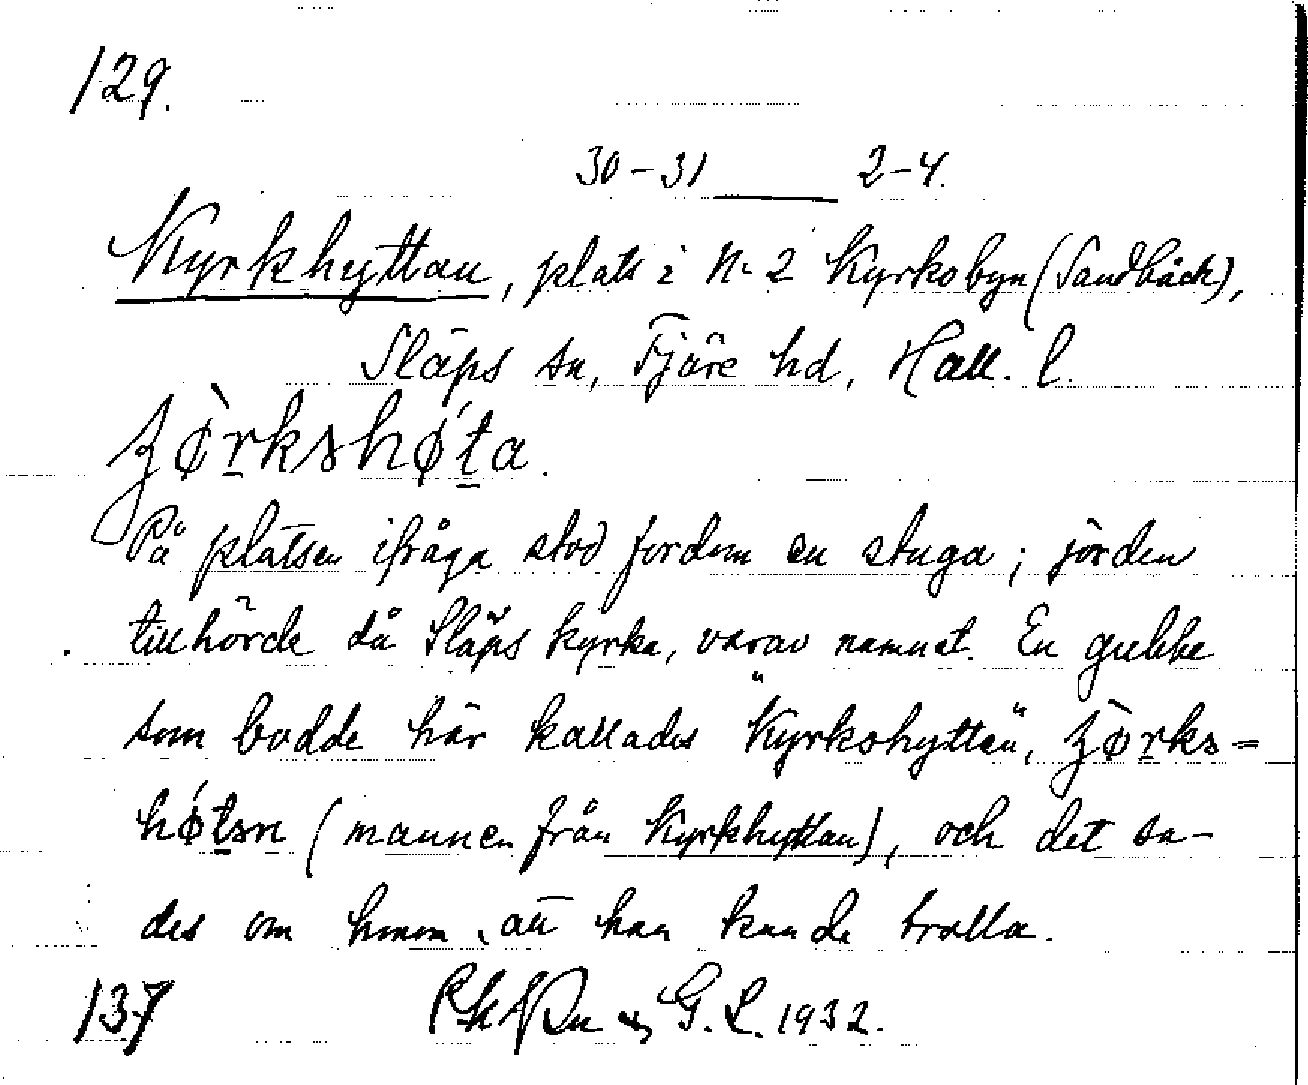 129.
30-31 2-4.
Kyrkhyttan, plats i Nr 2 Kyrkobyn (Sandbäck),
Släps sn, Fjäre hd, Hall. l.
ʒø̀rkshøta.
På platsen ifråga stod fordom en stuga; jorden
tillhörde då Släps kyrka, varav namnet. En gubbe
som bodde här kallades "Kyrkohytten", ʒø̀rks=
høtsn (mannen från Kyrkhyttan), och det sa-
des om honom, att han kunde trolla.
137 G. L. 1932.